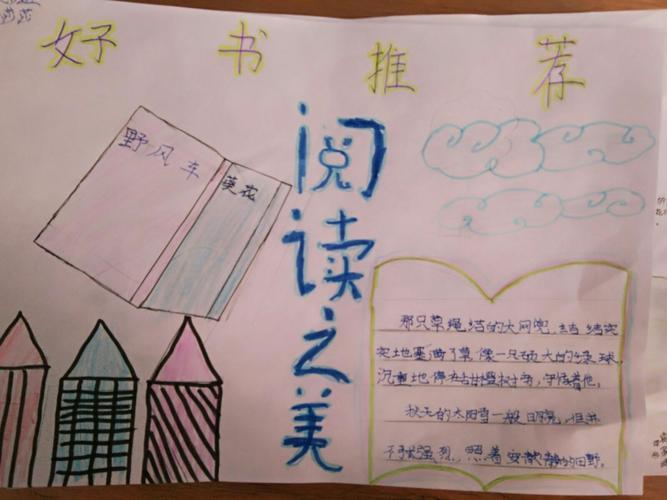 好书推荐
野风车
葵花
阅读之美
那只草绳结的大网兜,结结实
实地塞满了草像一只硕大的绿球,
沉重地停在甘蔗树旁,守候着他。
秋天的太阳雪一般明亮,但并
不强烈,照着安静的田野。